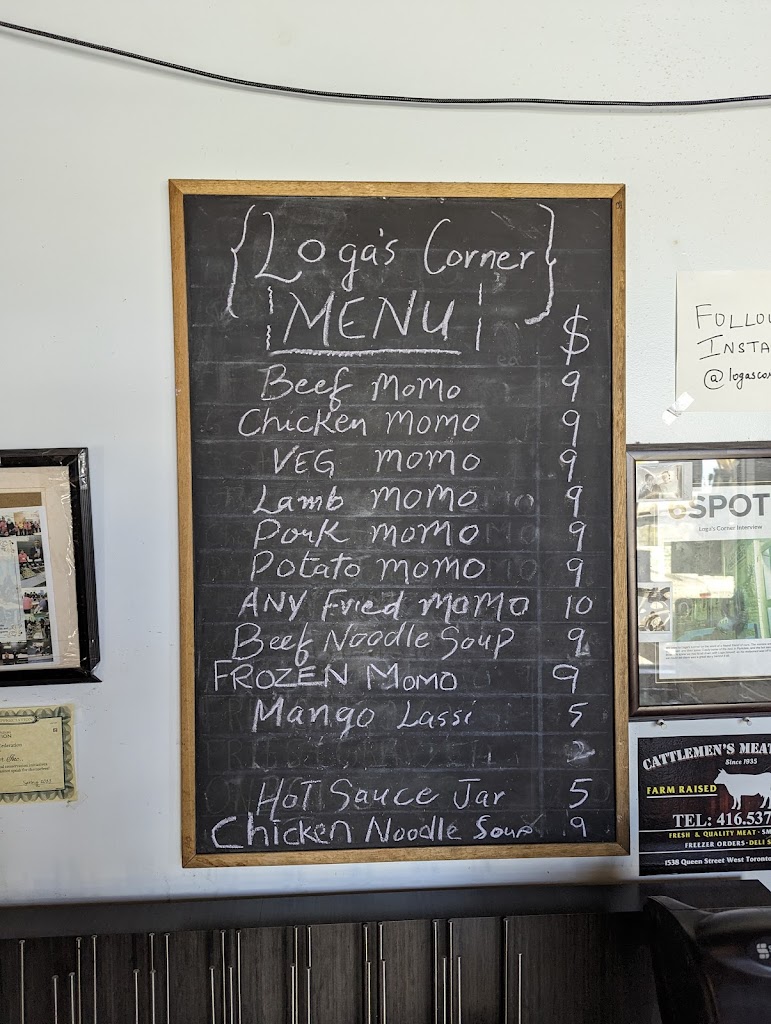 {Loga's Corner}
MENU
$
Beef momo 9
Chicken momo 9
VEG momo 9
Lamb momo 9
Pork momo 9
Potato momo 9
ANY Fried momo 10
Beef Noodle Soup 9
FROZEN MOMO 9
Mango Lassi 5
Hot Sauce Jar 5
Chicken Noodle Soup 9
FOLLO
INSTA
@logasco
SPOT
Loga's Corner Interview
CATTLEMEN'S MEAT
Since 1935
FARM RAISED
TEL: 416.537
FRESH & QUALITY MEAT · SM
FREEZER ORDERS · DELI S
1538 Queen Street West Toronto